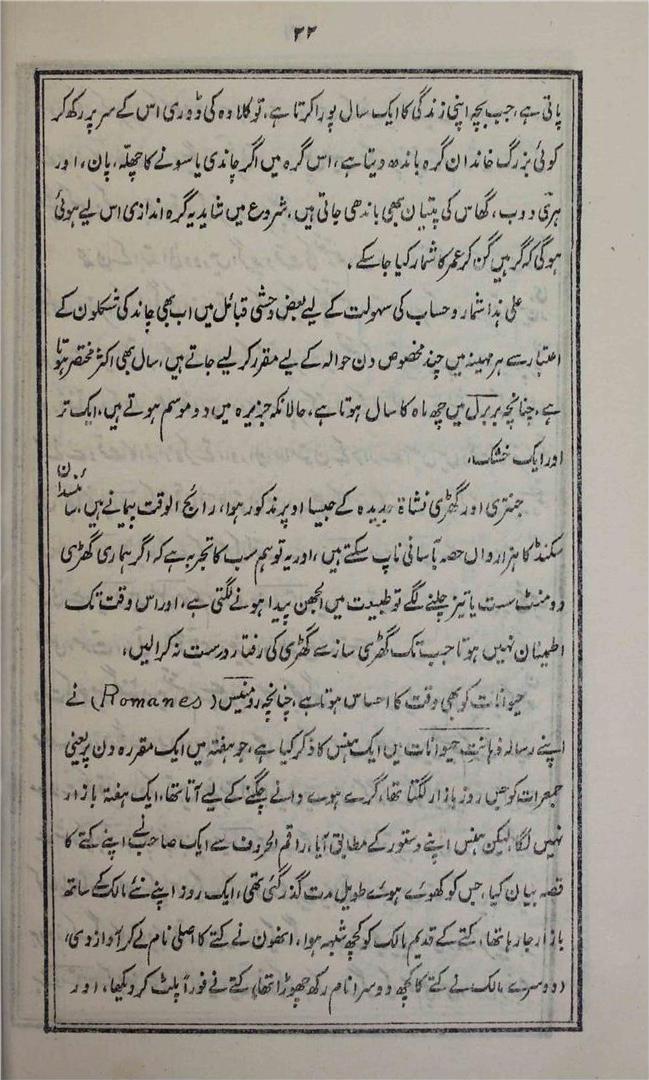 ۲۲
پاتی ہے، جب بچہ اپنی زندگی کا ایک سال پورا کرتا ہے، تو کلاوہ کی ڈوری اس کے سر پر رکھ کر
کوئی بزرگ خاندان گرہ باندھ دیتا ہے، اس گرہ میں اگر چاندی یا سونے کا چھلّہ، پان، اور
ہری دوب، گھاس کی پتیان بھی باندھی جاتی ہیں، شروع میں شاید یہ گرہ اندازی اس لیے ہوئی
ہوگی کہ گرہیں گن کر عمر کا شمار کیا جا سکے۔
علی ہذا شمار و حساب کی سہولت کے لیے بعض وحشی قبائل میں اب بھی چاند کی شکلون کے
اعتبار سے ہر مہینہ میں چند مخصوص دن حوالہ کے لیے مقرر کر لیے جاتے ہیں، سال بھی اکثر مختصر ہوتا
ہے، چنانچہ بربرل میں چھ ماہ کا سال ہوتا ہے، حالانکہ جزیرہ میں دو موسم ہوتے ہیں، ایک تر
اور ایک خشک،
جنتری اور گھڑی نشاۃ جدیدہ کے جیسا اوپر مذکور ہوا، رائج الوقت پیمانے ہیں، سائنسدان
سکنڈ کا ہزاروان حصہ بآسانی ناپ سکتے ہیں، اور یہ تو ہم سب کا تجربہ ہے کہ اگر ہماری گھڑی
دو منٹ سست یا تیز چلنے لگے تو طبیعت میں الجھن پیدا ہونے لگتی ہے، اور اس وقت تک
اطمینان نہیں ہوتا جب تک گھڑی ساز سے گھڑی کی رفتار درست نہ کرالیں،
حیوانات کو بھی وقت کا احساس ہوتا ہے، چنانچہ رومنیس (Romanes) نے
اپنے رسالہ ذہانت حیوانات میں ایک ہنس کا ذکر کیا ہے، جو ہفتہ میں ایک مقررہ دن پر یعنی
جمعرات کو جس روز بازار لگتا تھا، گرے ہوے دانے چگنے کے لیے آتا تھا، ایک ہفتہ بازار
نہیں لگا، لیکن ہنس اپنے دستور کے مطابق آیا، راقم الحروف سے ایک صاحب نے اپنے کتے کا
قصہ بیان کیا، جس کو کھوئے ہوئے طویل مدت گذر گئی تھی، ایک روز اپنے نئے مالک کے ساتھ
بازار جا رہا تھا، کتے کے قدیم مالک کو کچھ شبہہ ہوا، انھون نے کتے کا اصلی نام لے کر آواز دی،
(دوسرے مالک نے کتے کا کچھ دوسرا نام رکھ چھوڑا تھا) کتے نے فوراً پلٹ کر دیکھا، اور